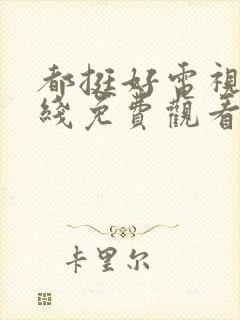 都挺好電視
綫免費觀看
卡里尔